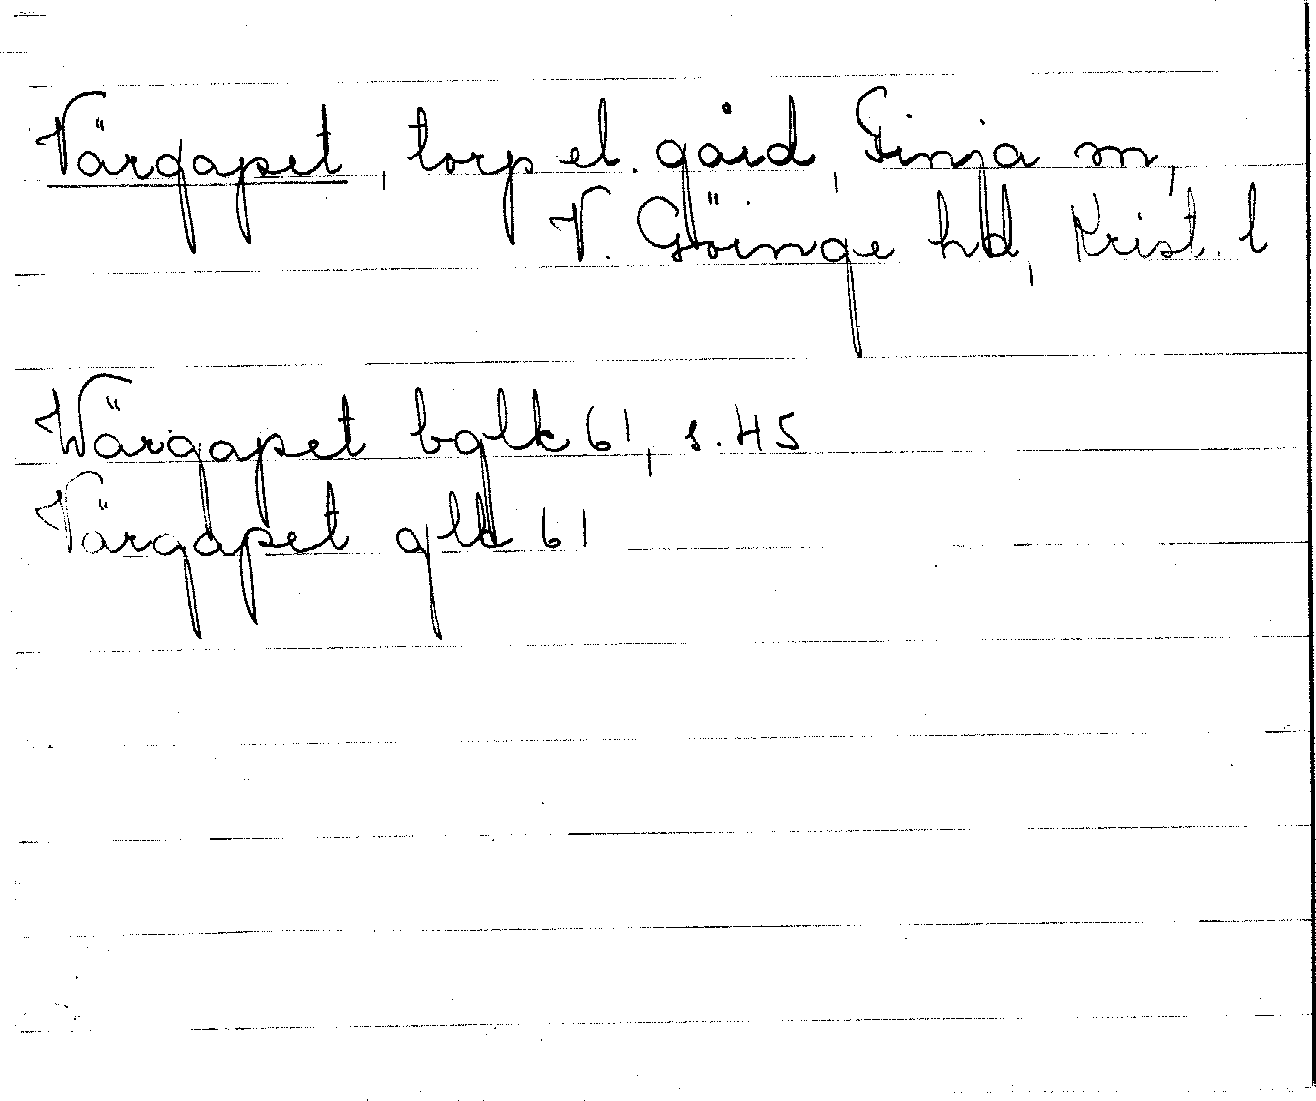 Värgapet, torp el. gård, Finja sn,
V. Göinge hd, Krist. l
Wärgapet bglk 61, s. 45
Värgapet glk 61